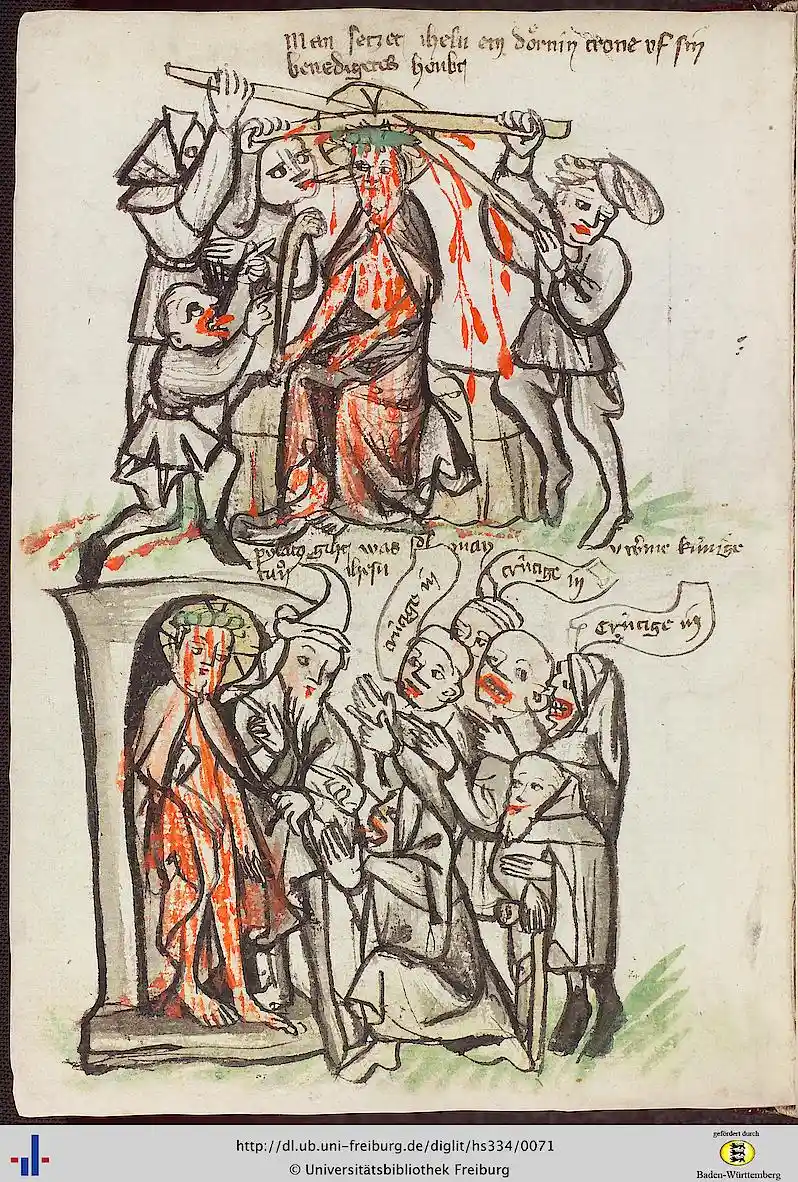 Man setzet ihesu ein dörnin crone uf sin
benedigetes höubt
pylatus giht was sol man
tun ihesu
uwerme künige
crücige in
crücige in
crücige in
http://dl.ub.uni-freiburg.de/diglit/hs334/0071
© Universitätsbibliothek Freiburg
gefördert durch
Baden-Württemberg